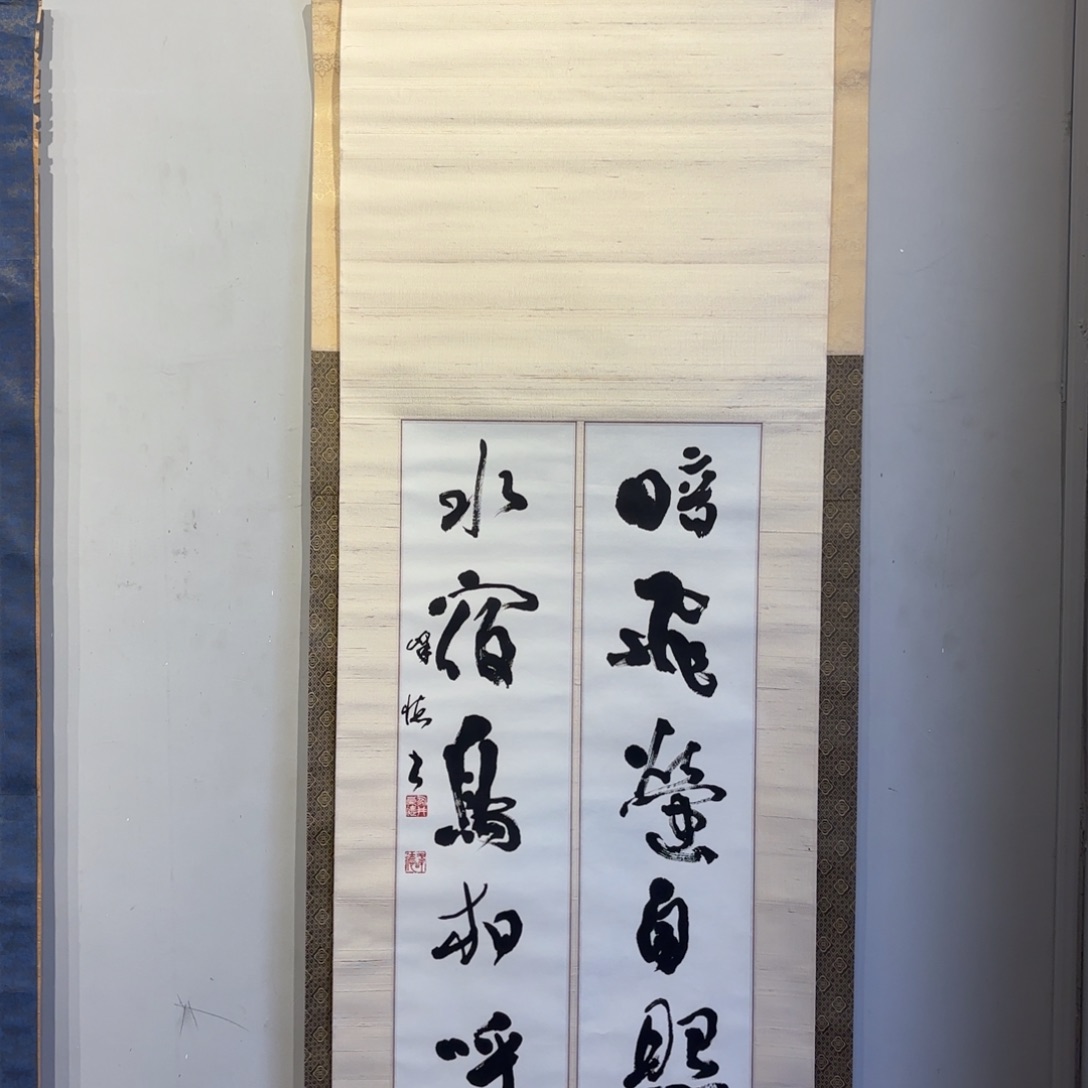 暗飛螢自照
水宿鳥相呼
峰 書